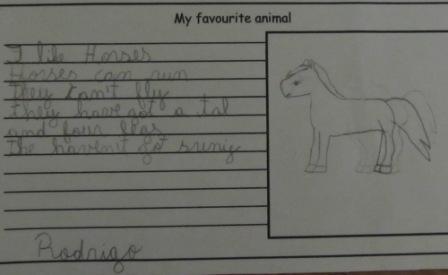 My favourite animal
I lik Horses
Horses can run
They can't fly
they have got a tal
and four legs
the haven't got
Rodrigo